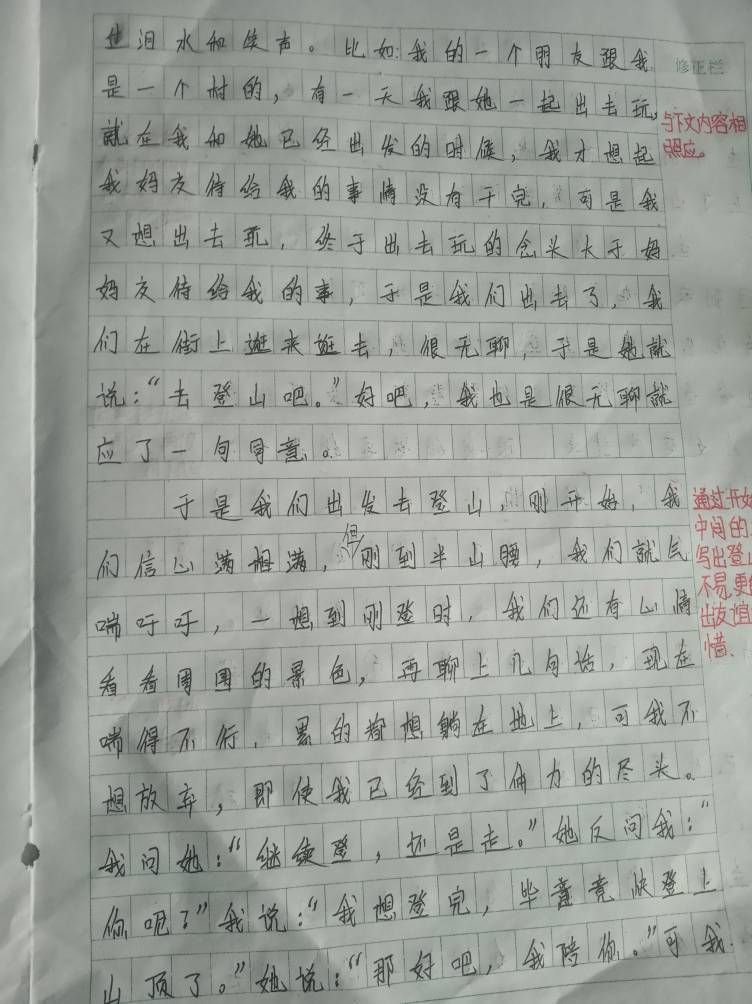 些泪水和笑声。比如:我的一个朋友跟我
修正栏
是一个村的，有一天我跟她一起出去玩，
与下文内容相
照应。
就在我和她已经出发的时候，我才想起
我妈友待给我的事情没有干完，可是我
又想出去玩，终于出去玩的念头大于妈
妈友待给我的事，于是我们出去了，我
们在街上逛来逛去，很无聊，于是她就
说：“去登山吧。”好吧，我也是很无聊就
应了一句同意。
于是我们出发去登山，刚开始，我
通过开始
中间的
写出登山
不易，更
出友谊
惜、
们信心满满，但刚到半山腰，我们就气
喘吁吁，一想到刚登时，我们还有心情
看看周围的景色，再聊上几句话，现在
喘得不行，累的都想躺在地上，可我不
想放弃，即使我已经到了体力的尽头。
我问她：“继续登，还是走。”她反问我：“
你呢？”我说：“我想登完，毕竟快登上
山顶了。”她说：“那好吧，我陪你。”可我